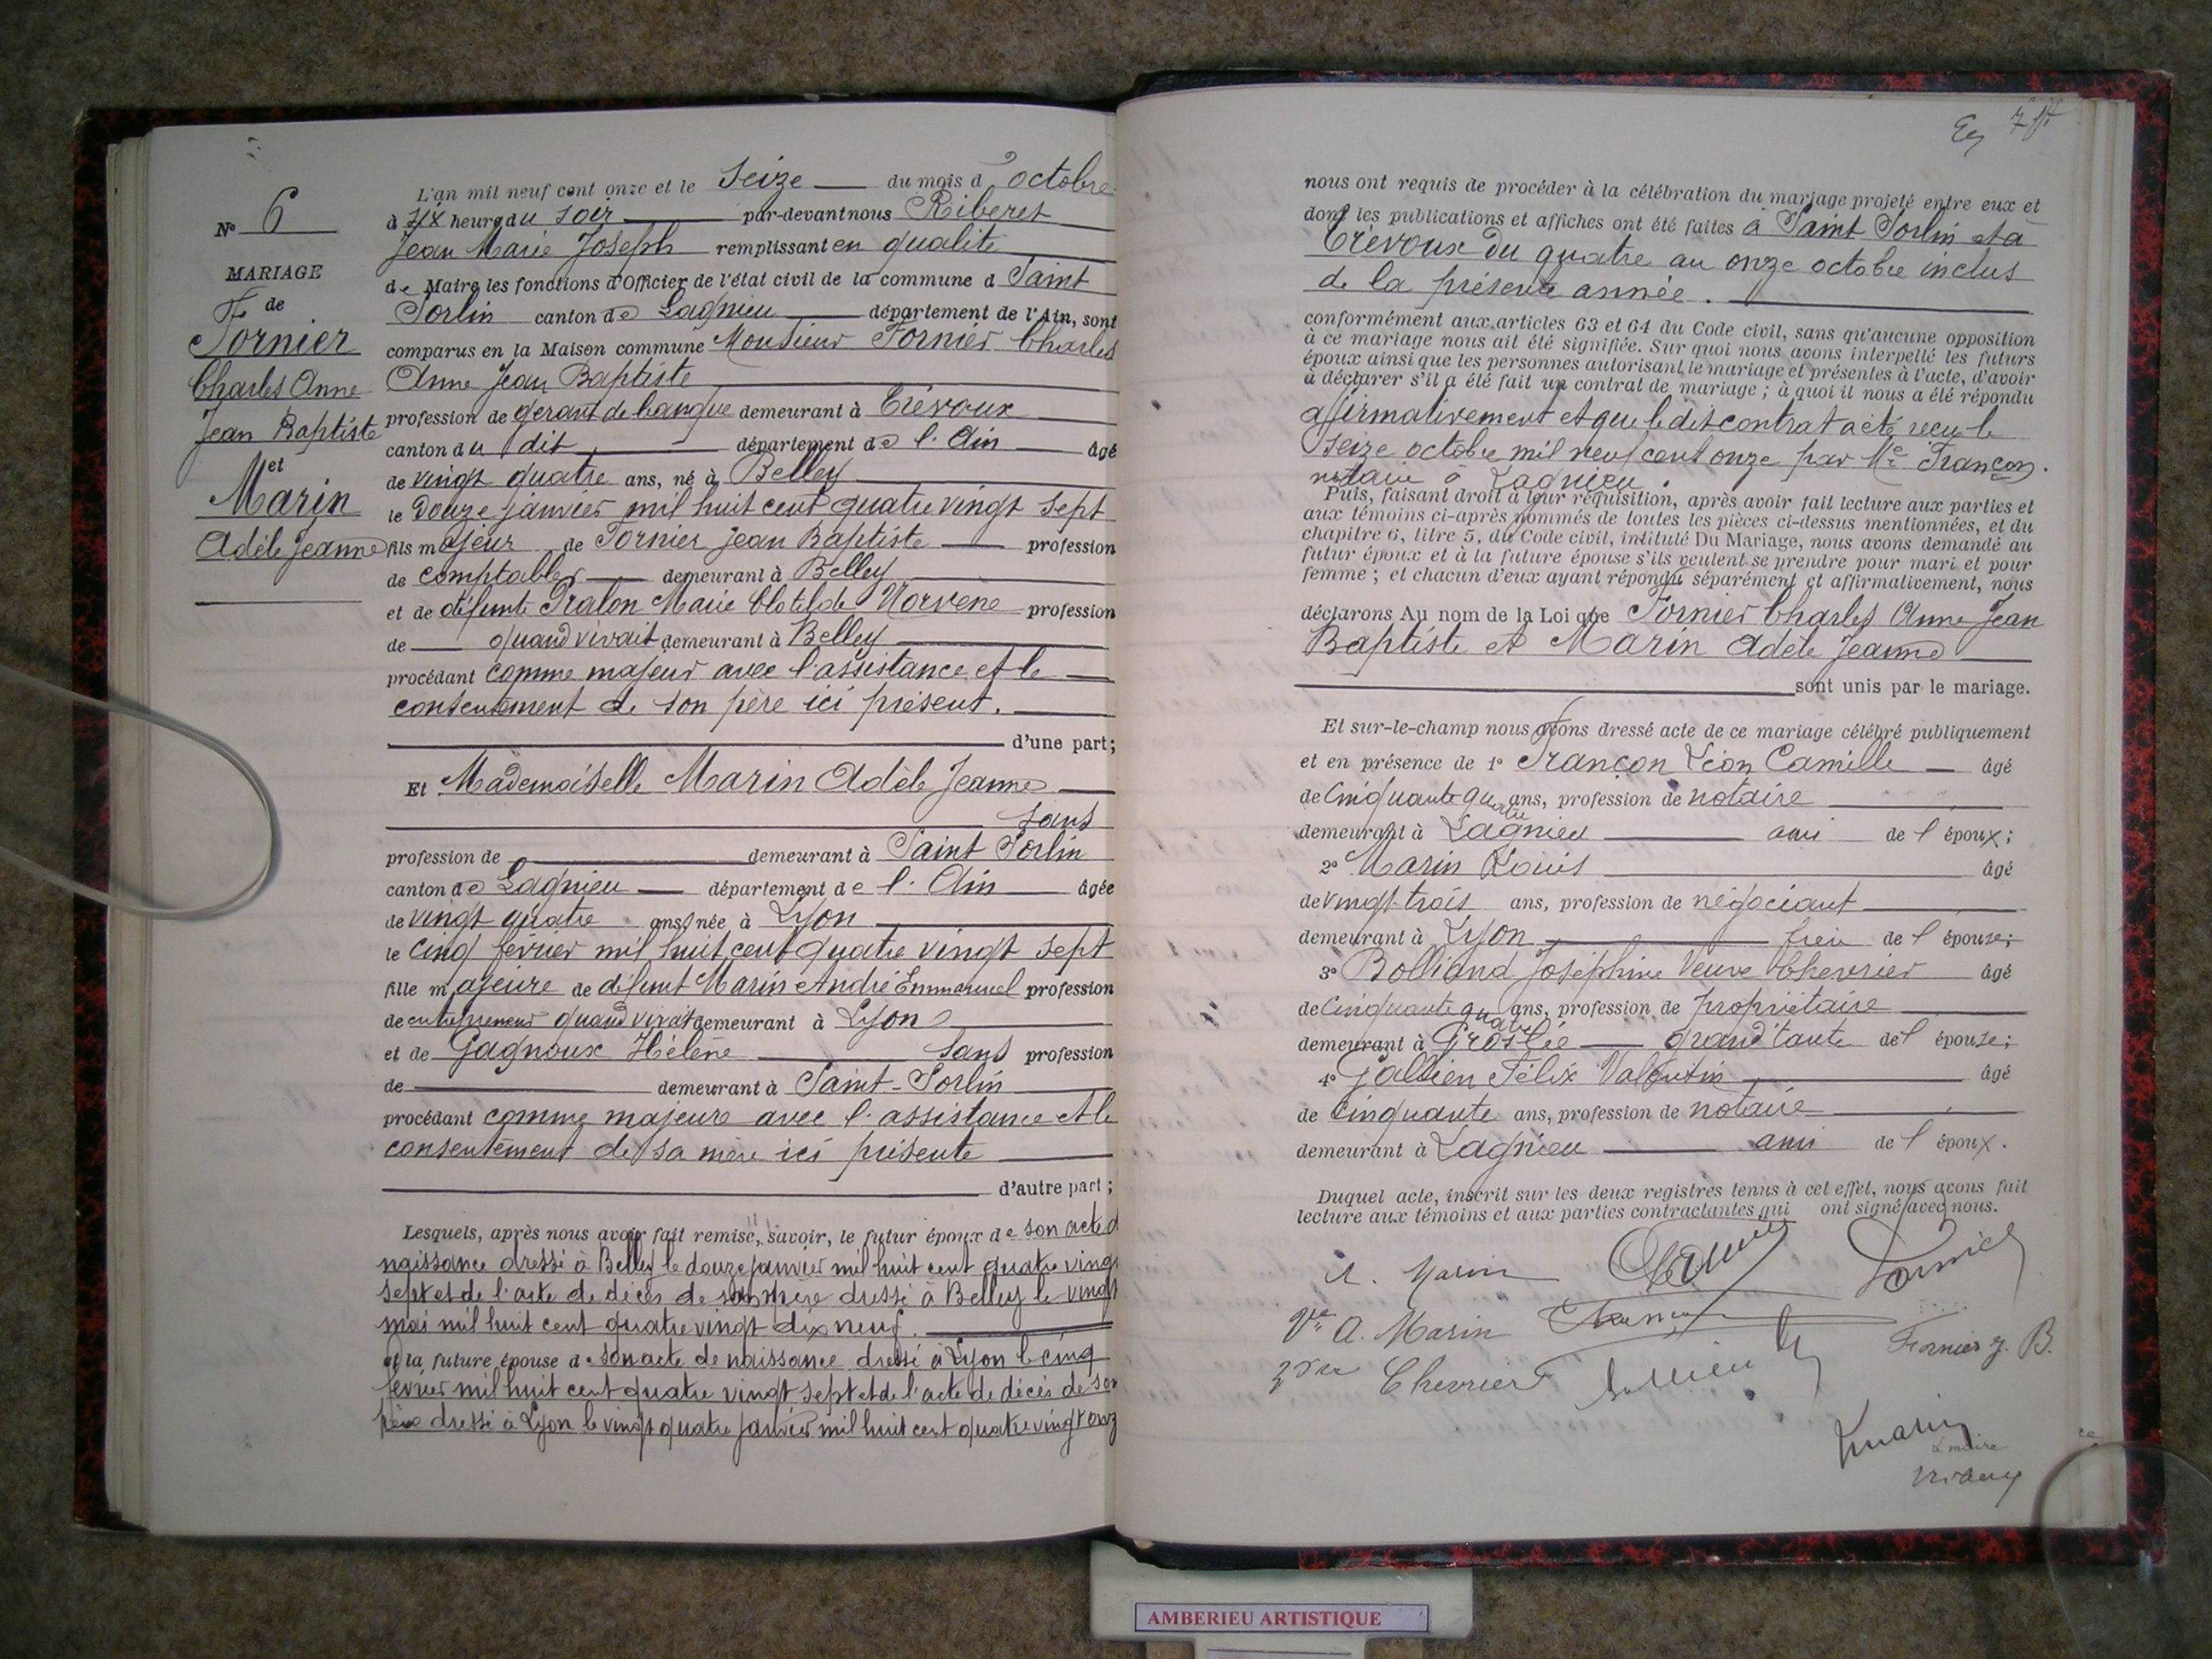 L'an mil neuf cent onze et le Seize du mois d'octobre
à six heures du soir par-devant nous Riberet
Jean Marie Joseph remplissant en qualité
de Maire les fonctions d'Officier de l'état civil de la commune d Saint
Sorlin canton de Lagnieu département de l'Ain, sont
comparus en la Maison commune Monsieur Fornier Charles
Anne Jean Baptiste
profession de gérant de banque demeurant à Trévoux
canton du dit département de l'Ain âgé
de vingt quatre ans, né à Belley
le Douze janvier mil huit cent quatre vingt sept
fils majeur de Fornier Jean Baptiste profession
de comptable demeurant à Belley
et de défunte Pralon Marie Clotilde Norvène profession
de quand vivait demeurant à Belley
procédant comme majeur avec l'assistance et le
consentement de son père ici présent.
d'une part;
Et Mademoiselle Marin Adèle Jeanne
sans
profession de demeurant à Saint Sorlin
canton de Lagnieu département de l'Ain âgée
de vingt quatre ans, née à Lyon
le cinq février mil huit cent quatre vingt sept
fille majeure de défunt Marin André Emmanuel profession
de entrepreneur quand vivait demeurant à Lyon
et de Gagnoux Hélène sans profession
de demeurant à Saint-Sorlin
procédant comme majeure avec l'assistance et le
consentement de sa mère ici présente
d'autre part;
Lesquels, après nous avoir fait remise, savoir, le futur époux de son acte d
naissance dressé à Belley le douze janvier mil huit cent quatre ving
sept et de l'acte de décès de sa mère dressé à Belley le vingt
mai mil huit cent quatre vingt dix neuf.
et la future épouse de son acte de naissance dressé à Lyon le cinq
février mil huit cent quatre vingt sept et de l'acte de décès de son
père dressé à Lyon le vingt quatre janvier mil huit cent quatre vingt onz
N° 6
MARIAGE
de
Fornier
Charles Anne
Jean Baptiste
et
Marin
Adèle Jeanne
nous ont requis de procéder à la célébration du mariage projeté entre eux et
dont les publications et affiches ont été faites à Saint Sorlin et à
Trévoux du quatre au onze octobre inclus
de la présente année.
conformément aux articles 63 et 64 du Code civil, sans qu'aucune opposition
à ce mariage nous ait été signifiée. Sur quoi nous avons interpellé les futurs
époux ainsi que les personnes autorisant le mariage et présentes à l'acte, d'avoir
à déclarer s'il a été fait un contrat de mariage; à quoi il nous a été répondu
affirmativement et que le dit contrat a été reçu le
seize octobre mil neuf cent onze par Me Françon.
notaire à Lagnieu.
Puis, faisant droit à leur réquisition, après avoir fait lecture aux parties et
aux témoins ci-après nommés de toutes les pièces ci-dessus mentionnées, et du
chapitre 6, titre 5, du Code civil, intitulé Du Mariage, nous avons demandé au
futur époux et à la future épouse s'ils veulent se prendre pour mari et pour
femme; et chacun d'eux ayant répondu séparément et affirmativement, nous
déclarons Au nom de la Loi que Fornier Charles Anne Jean
Baptiste et Marin Adèle Jeanne
sont unis par le mariage.
Et sur-le-champ nous avons dressé acte de ce mariage célébré publiquement
et en présence de 1° Françon Léon Camille âgé
de Cinquante quatre ans, profession de notaire
demeurant à Lagnieu ami de l'époux;
2° Marin Louis âgé
de vingt-trois ans, profession de négociant
demeurant à Lyon frère de l'épouse;
3° Bolliand Joséphine Veuve Chevrier âgé
de Cinquante quatre ans, profession de propriétaire
demeurant à Groslée grand'tante de l'épouse;
4° Gallien Félix Valentin âgé
de Cinquante ans, profession de notaire
demeurant à Lagnieu ami de l'époux.
Duquel acte, inscrit sur les deux registres tenus à cet effet, nous avons fait
lecture aux témoins et aux parties contractantes qui ont signé avec nous.
A. Marin Fornier
Ve A. Marin
Fornier J. B.
Chevrier
Marin
Le maire
AMBERIEU ARTISTIQUE